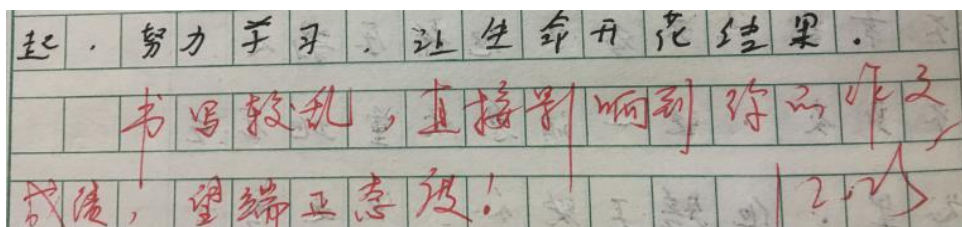 起，努力学习，让生命开花结果．
书写较乱，直接影响到你的作文
成绩，望端正态度！ 12.25